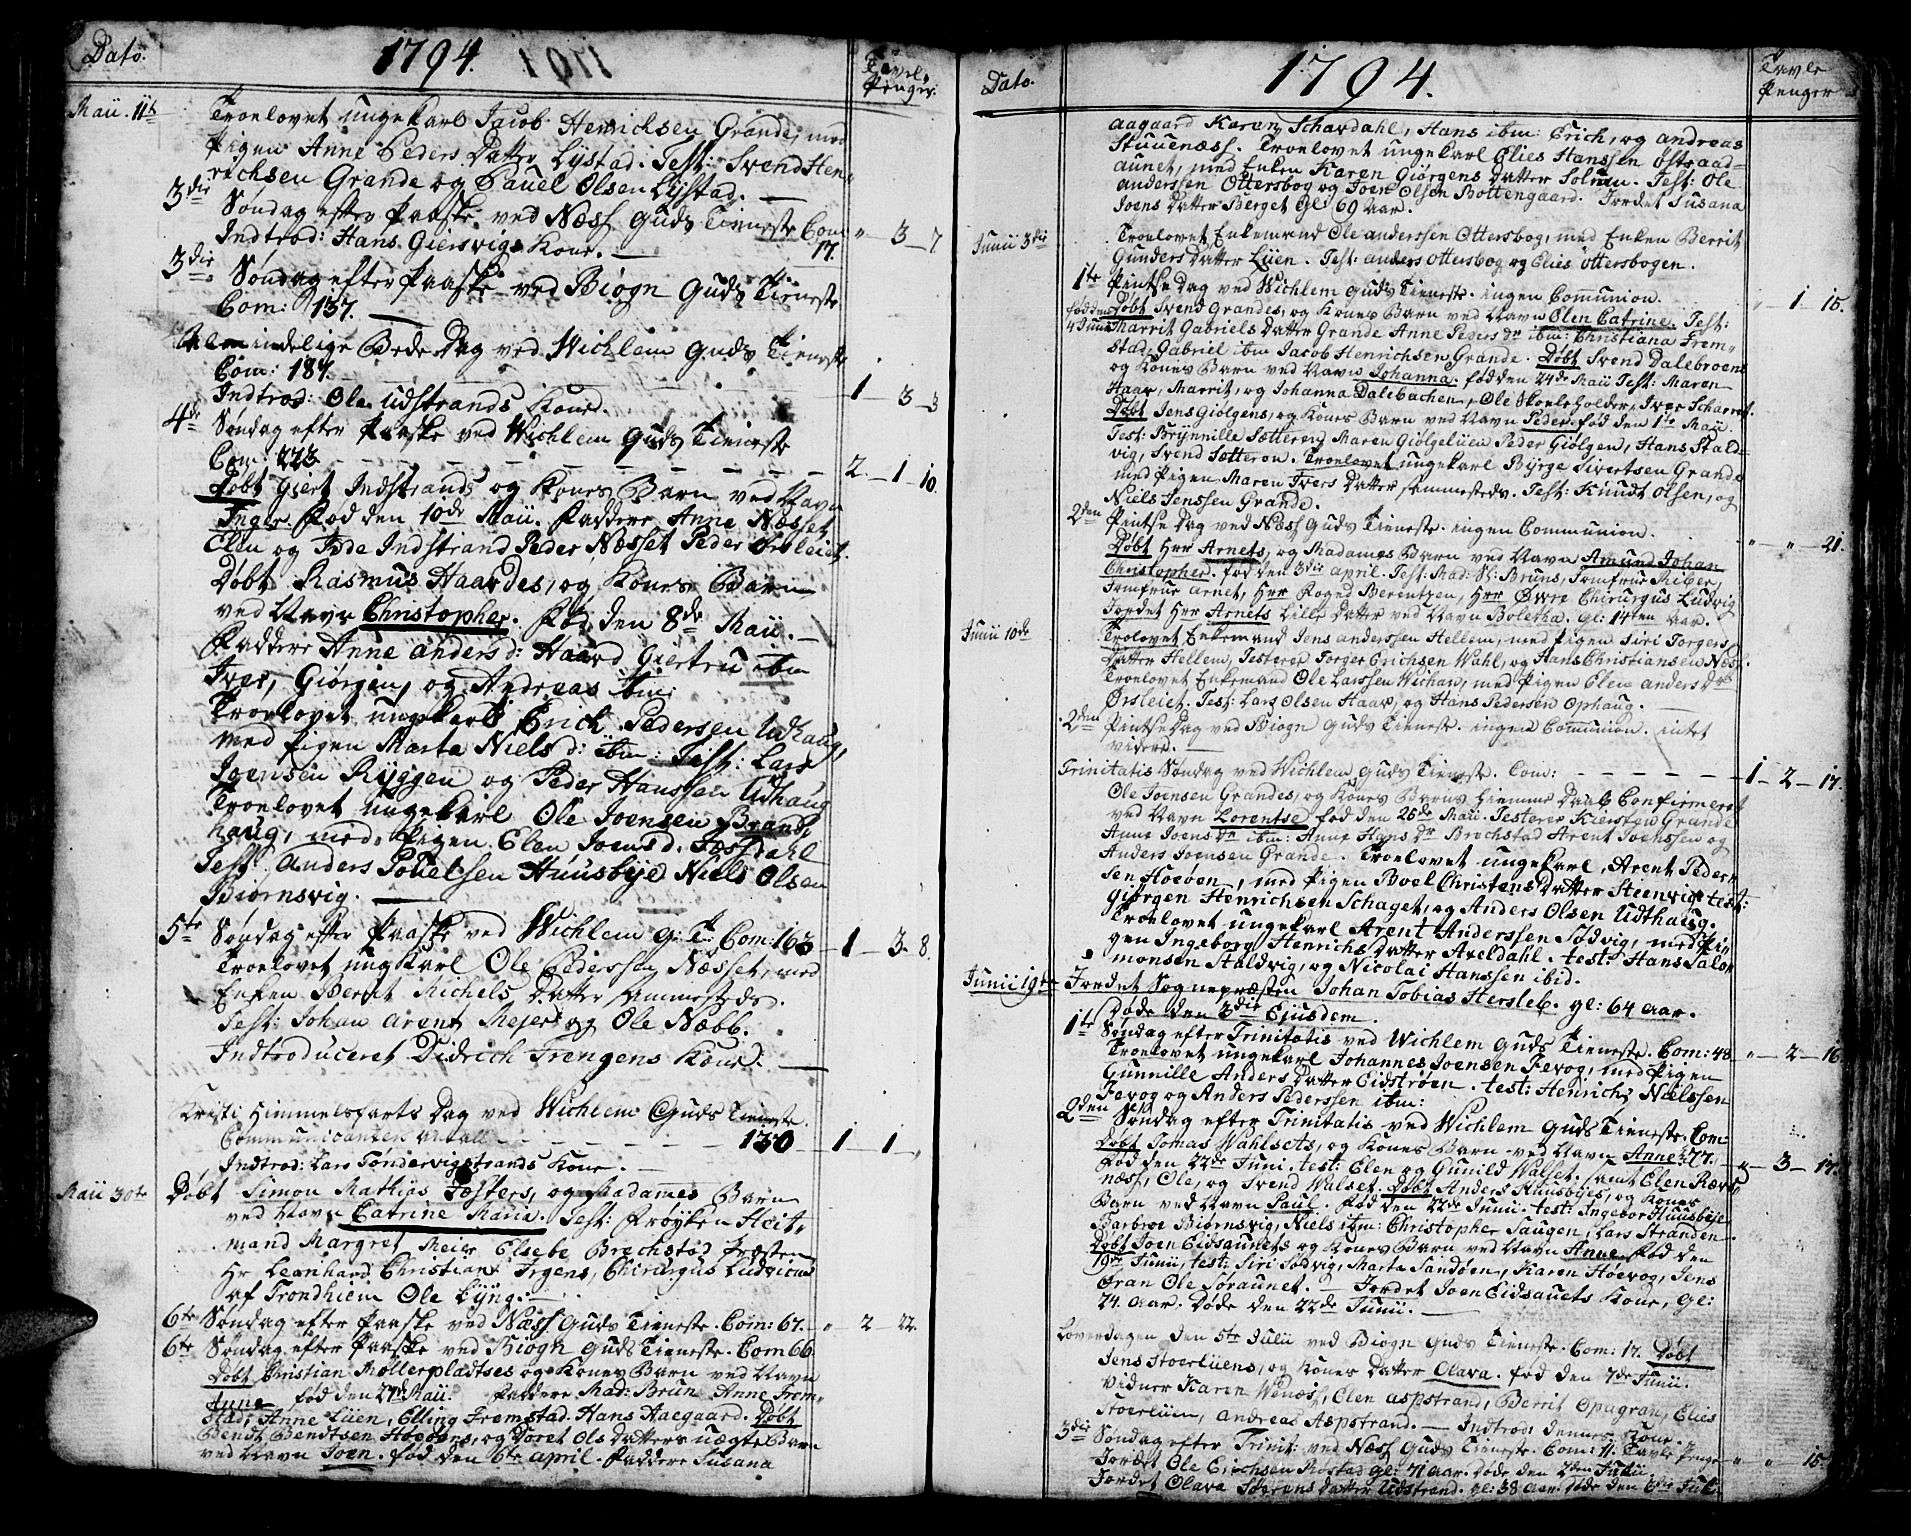 Dato. 1794. Tavle Penger.
Maii. 11te Troelovet ungekarl Jacob Henrichsen Grande, med
Pigen Anne Peders Datter Lystad. Test: Svend Hen-
richsen Grande og Pauel Olsen Lystad.
3die Søndag efter Paaske ved Næss Guds Tieneste Com 17. " - 3 - 7
Indtrod: Hans Giersvigs Kone.
3die Søndag efter Paaske ved Biøgn Guds Tieneste
Com: 137.
Almindelige Bede Dag ved Wichlem Guds Tieneste
Com: 187.
Indtrod: Ole Udstrands Kone. 1 - 3 - 3
4de Søndag efter Paaske ved Wichlem Guds Tieneste
Com: 223 2 - 1 10.
Døbt Giert Indstrands og Kones Barn ved Navn
Inger. Fød den 10de Maii. Faddere Anne Næsset
Elen og Inde Indstrand Peder Næsset Peder Ørsleiet,
Døbt Rasmus Haardes, og Kones Barn
ved Navn Christopher. Fød den 8de Maii.
Faddere Anne Anders d: Haard Giertru ibm
Iver, Giørgen, og Andreas ibm:
Troelovet ungekarl Erich Pedersen Udhaug,
med Pigen Marta Niels d: ibm: Test: Lars
Joensen Ryggen og Peder Hanssen Udhaug
Troelovet ungekarl Ole Joensen Brand,
haug, med Pigen Elen Joens d. Tæssdahl
Test: Anders Pouelsen Huusbye Niels Olsen
Biørnsvig.
5te Søndag efter Paaske ved Wichlem G: T: Com: 163 - 1 - 3 - 8.
Troelovet ungkarl Ole Pederssen Næsset, med
Enken Berit Michels Datter sammesteds.
Test: Johan Arent Mejer og Ole Næbb.
Indtroduceret Didrich Trengens Kone.
Kristi Himmelsfarts Dag ved Wichlem Guds Tieneste
Communicanter 130 - 1 - 1 -
Indtrod: Lars Tøndervigstrands Kone.
Maii 30te Døbt Simon Mathias Føsters, og Madames Barn
ved Navn Catrine Maria. Test: Frøyken Heit,
mand Margret Meier Elsebe Brechstød Præsten
Hr Leonhard Christian Irgens, Chirurgus Ludvicus
af Trondhiem Ole Lyng.
6te Søndag efter Paaske ved Næss Guds Tieneste. Com: 67. " 2 - 22.
6te Søndag efter Paaske ved Biøgn Guds Tieneste. Com 66.
Døbt Christian Møllerpladtses og Kones Barn ved Navn
Anne fød den 27de Maii. Faddere Mad: Brun Anne Frem-
stad, Anne Lüen, Elling Fremstad. Hans Aaegaard. Døbt
Bendt Bendtsen Høeøens, og Doret Ols Datters uægte Barn
ved Navn Joen. fød den 6te April. Faddere Susana
Dato. 1794. Tavle Penger
aagaard Karen Schavdahl, Hans ibm: Erich, og Andreas
Stuuenæss. Troelovet ungekarl Elies Hanssen Østraad-
aunet, med Enken Karen Giørgens Datter Solnen. Test: Ole
Anderssen Ottersbog og Joen Olsen Bottengaard. Jordet Susana
Joens Datter Berget Gl 69 Aar.
Junii 3die Troelovet Enkemand Ole Anderssen Ottersbog, med Enken Berrit
Gunders Datter Lüen. Test: Anders Ottersbog og Elies Ottersbogen.
1te Pintse Dag ved Wichlem Guds Tieneste. ingen Communion. " - 1 - 15.
fød den 4 Junii Døbt Svend Grandes, og Kones Barn ved Navn Elen Catrine. Test:
Marrit Gabriels Datter Grande Anne Peders Dr ibm: Christiana Frem-
stad, Gabriel ibm Jacob Henrichsen Grande. Døbt Svend Dalebroens
og Kones Barn ved Navn Johanna. fød den 24de Maii Test: Maren
Haar, Marrit, og Johanna Dalebachen, Ole Skoeleholder, Iver Scharret.
Døbt Jens Giølgens, og Kones Barn ved Navn Peder. fød den 1te Maii.
Test: Brynnille Sætteren Maren Giølgelüen Peder Giølgen, Hans Stald-
vig, Svend Sætteron. Troelovet ungekarl Byrge Sivertsen Grande
med Pigen Maren Ivers Datter sammesteds. Test: Knudt Olsen, og
Niels Jenssen Grande.
2den Pintse Dag ved Næss Guds Tieneste. ingen Communion. " - " - 21.
Døbt Herr Arnets, og Madames Barn ved Navn Amund Johan
Christopher. fød den 3die April. Test: Mad: Bruns, Jomfrue Riber,
Jomfrue Arnet, Herr Foged Berentzen, Herr Øvre Chirurgus Ludvig
Jordet Hrr Arnets Lille Datter ved Navn Boletha. gl: 14ten aar.
Junii 10de Trolovet Enkemand Jens Anderssen Hellem, med Pigen Siri Torgers
Datter Hellem, Testerer Torger Erichsen Wahl, og Hans Christiansen Næs.
Troelovet Enkemand Ole Larssen Wichan, med Pigen Elen Anders Drs
Ørsleiet. Test: Lars Olsen Haar, og Hans Pedersen Ophaug.
2den Pintse Dag ved Biøgn Guds Tieneste. ingen Communion. intet
videre.
Trinitatis Søndag ved Wichlem Guds Tieneste. Com: 1 - 2 - 17.
Ole Joensen Grandes, og Kones Barns Hiemme Daab Confirmeret
ved Navn Lorentse fød den 26de Maii. Testerer Kiersten Grande
Anne Joens Dr ibm: Anne Hans Dr Brechstad Arent Joenssen og
Anders Joensen Grande. Troelovet ungekarl, Arent Peder-
sen Hoeøen, med Pigen Boel Christens Datter Steenvig test:
Giørgen Henrichsen Schaget, og Anders Olsen Udthaug.
Troelovet ungekarl Arent Anderssen Sødvig, med Pi-
gen Ingeborg Henrichs Datter Axeldahl. test: Hans Salo-
monsen Staldvig, og Nicolai Hanssen ibid.
Junii 19de Jordet Sogneprästen Johan Tobias Hersleb. gl: 64 aar.
Døde den 3die Ejusdem.
1te Søndag efter Trinitatis ved Wichlem Guds Tieneste. Com: 48 " - 2 - 16
Troelovet ungekarl Johannes Joensen Fevog, med Pigen
Gunnille Anders Datter Eidstrøen. test: Henrich Nielssen
Fevog og Anders Pederssen ibm:
2den Søndag efter Trinitatis ved Wichlem Guds Tieneste. Com
Døbt Tomas Wahlsets, og Kones Barn ved Navn Anne 77. " - 3 - 17.
Fød den 22de Juni. test: Elen og Gunild Walset. samt Elen Ræve
næss, Ole, og Svend Walset. Døbt Anders Huusbyes, og Kones
Barn ved Navn Paul. Fød den 22de Junii. test: Ingebor Huusbye
Barbroe Biørnsvig, Niels ibm: Christopher Saugen, Lars Stranden.
Døbt Joen Eidsaunets og Kones Barn ved Navn Anne. Fød den
19de Junii, test: Siri Sødvig, Marta Sandøen, Karen Høevog, Jens
Gran Ole Søraunet. Jordet Joen Eidsauets Kone, Gl:
24. Aar. Døde den 22de Junii.
Løverdagen den 5te Julii ved Biøgn Guds Tieneste. Com: 17. Døbt
Jens Stoerlüens, og Kones Datter Olava. fød den 7de Junii.
Vidner Karen Wenæss, Elen Aspstrand, Berrit Opugran, Elies
Stoerlüen, Andreas Aspstrand. Indtrod: Dennes Kone.
3die Søndag efter Trinit: ved Næss Guds Tieneste. Com: 11. Tavle Penge " " 15.
Jordet Ole Erichsen Røstad gl: 71 Aar. Døde den 2den Julii.
Jordet Olava Sørens Datter Udstrand. gl: 38 aar. Døde den 6te Jul: